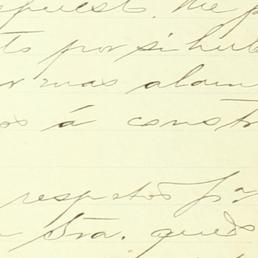 puesto. Me p
to por si hub
or mas alam
os á constr
respetos pa
Sra. quedo